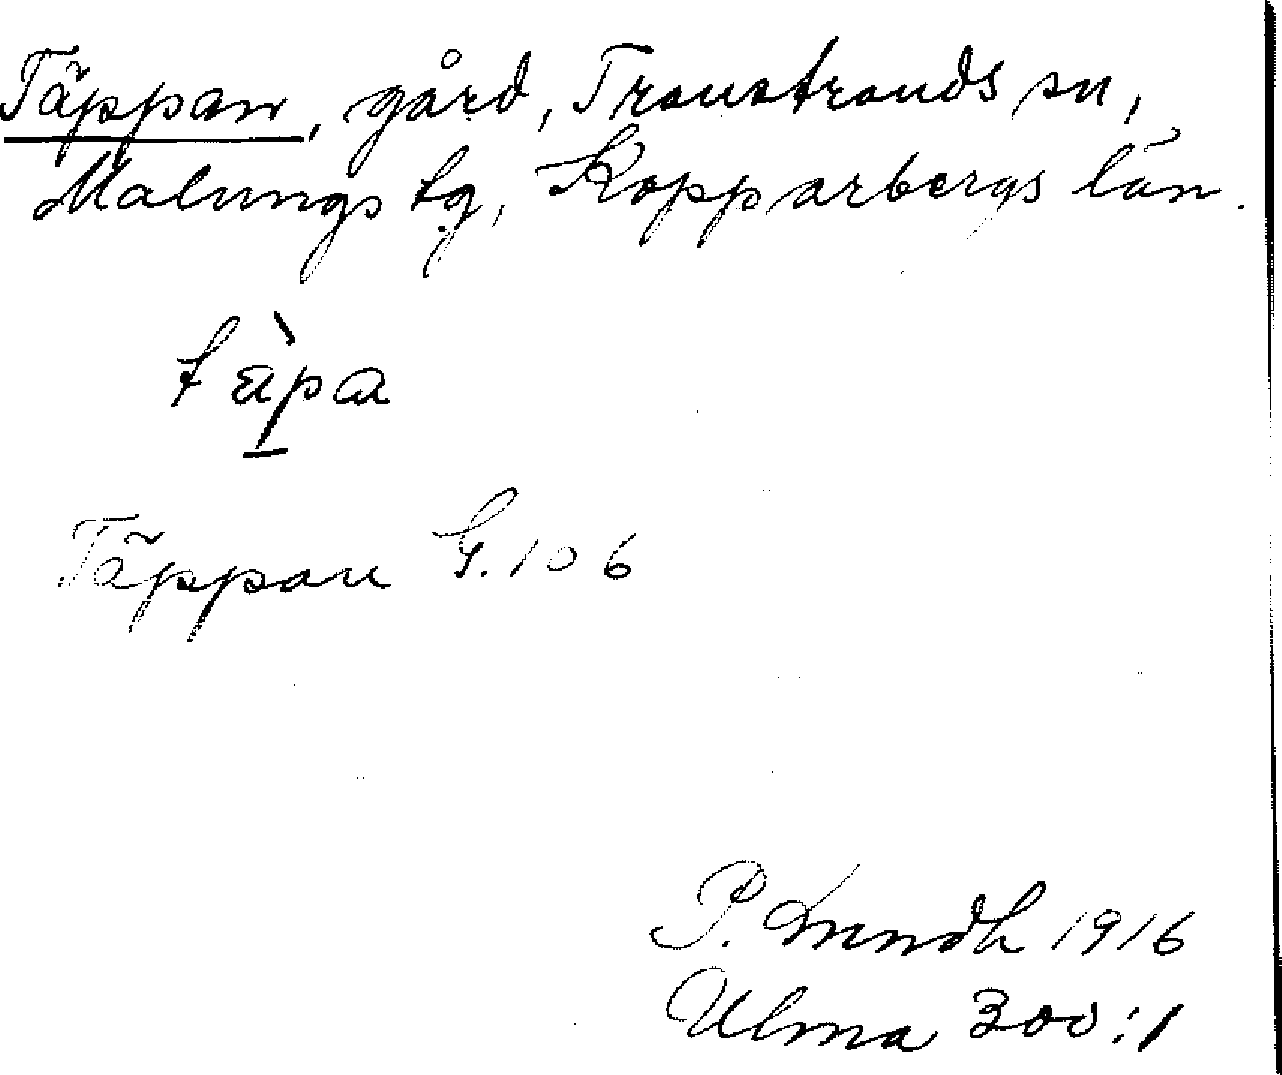 Täppan, gård, Transtrands sn,
Malungs tg, Kopparbergs län.
täpa
Täppan G. 106
P. Lundh 1916
Ulma 300:1